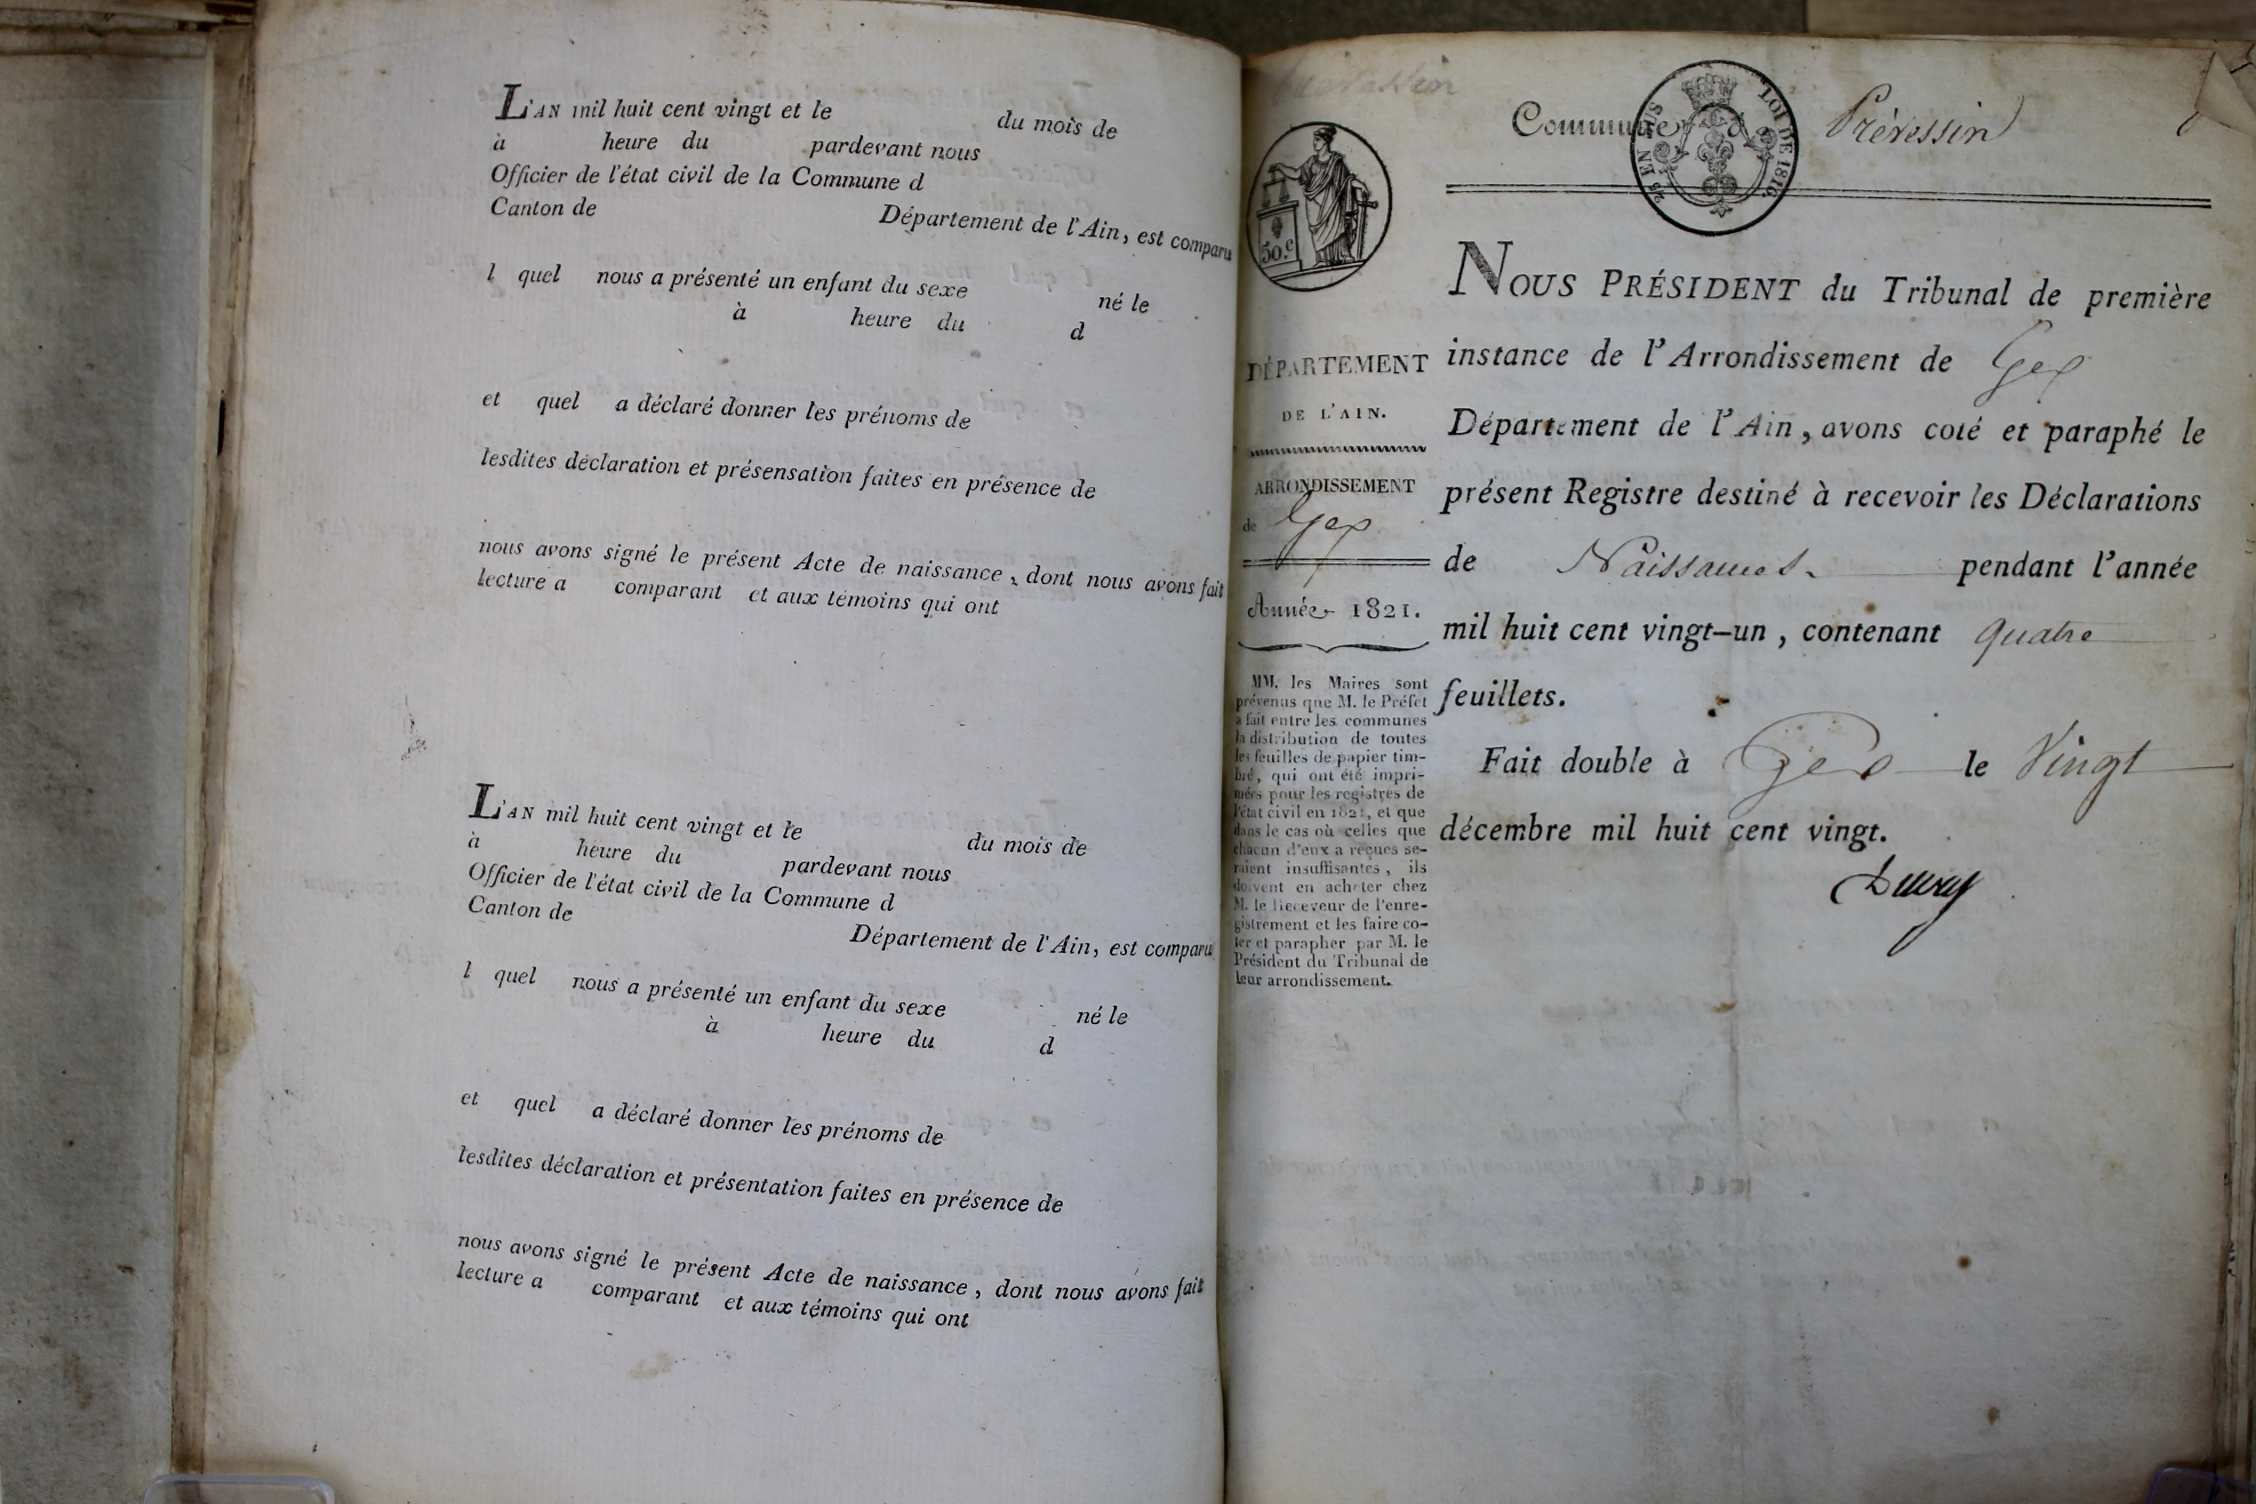 L'AN mil huit cent vingt et le du mois de
à heure du pardevant nous
Officier de l'état civil de la Commune d
Canton de Département de l'Ain, est comparu
l quel nous a présenté un enfant du sexe né le
à heure du d
et quel a déclaré donner les prénoms de
lesdites déclaration et présensation faites en présence de
nous avons signé le présent Acte de naissance, dont nous avons fait
lecture a comparant et aux témoins qui ont
L'AN mil huit cent vingt et le du mois de
à heure du pardevant nous
Officier de l'état civil de la Commune d
Canton de Département de l'Ain, est comparu
l quel nous a présenté un enfant du sexe né le
à heure du d
et quel a déclaré donner les prénoms de
lesdites déclaration et présentation faites en présence de
nous avons signé le présent Acte de naissance, dont nous avons fait
lecture a comparant et aux témoins qui ont
Commune d Prévessin
25 EN SUS LOI DE 1816.
50.c
DÉPARTEMENT
DE L'AIN.
ARRONDISSEMENT
de Gex
Année 1821.
MM. les Maires sont
prévenus que M. le Préfet
a fait entre les communes
la distribution de toutes
les feuilles de papier tim-
bré, qui ont été impri-
mées pour les registres de
l'état civil en 1821, et que
dans le cas où celles que
chacun d'eux a reçues se-
raient insuffisantes, ils
doivent en acheter chez
M. le Receveur de l'enre-
gistrement et les faire co-
ter et parapher par M. le
Président du Tribunal de
leur arrondissement.
NOUS PRÉSIDENT du Tribunal de première
instance de l'Arrondissement de Gex
Département de l'Ain, avons coté et paraphé le
présent Registre destiné à recevoir les Déclarations
de Naissances pendant l'année
mil huit cent vingt-un, contenant quatre
feuillets.
Fait double à Gex le Vingt
décembre mil huit cent vingt.